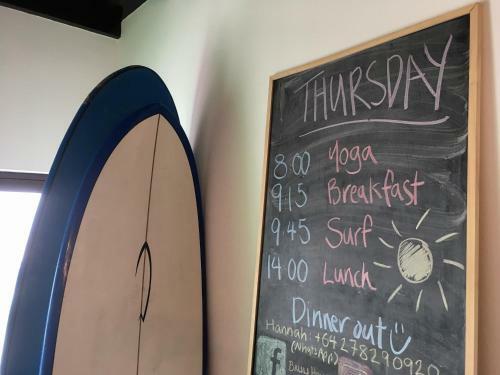 THURSDAY
8:00 Yoga
9:15 Breakfast
9:45 Surf
14:00 Lunch
Dinner out
Hannah: +64278290920
(WhatsApp)
f